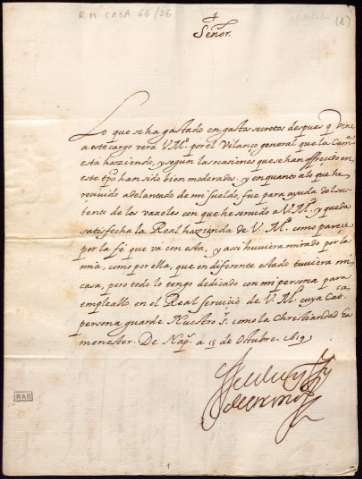 R M CAXA 66/26
(1)
+
Señor.
Lo que se ha gastado en gastos secretos despues q̃ vine
a este cargo verá V. Mᵈ por el Vilanço general que la Camᵃ
está haziendo, y segun las ocasiones que se han offrecido en
este tp̃o han sido bien moderados, y en quanto a lo que he
recivido adelantado de mi sueldo, fue para ayuda del sus-
tento de los vaxeles con que he servido a V. Mᵈ, y queda
satisfecha la Real hazienda de V. Mᵈ como parece
por la fé que va con esta, y assi huviera mirado por la
mia, como por ella, que en diferente estado tuviera mi
casa, pero todo lo tengo dedicado con mi persona para
empleallo en el Real servicio de V. Mᵈ cuya Cat.ᶜᵃ
persona guarde Nuestro S.ʳ como la Christiandad ha
menester. De Napˢ a 15 de Otubre. 1619
RAE
1